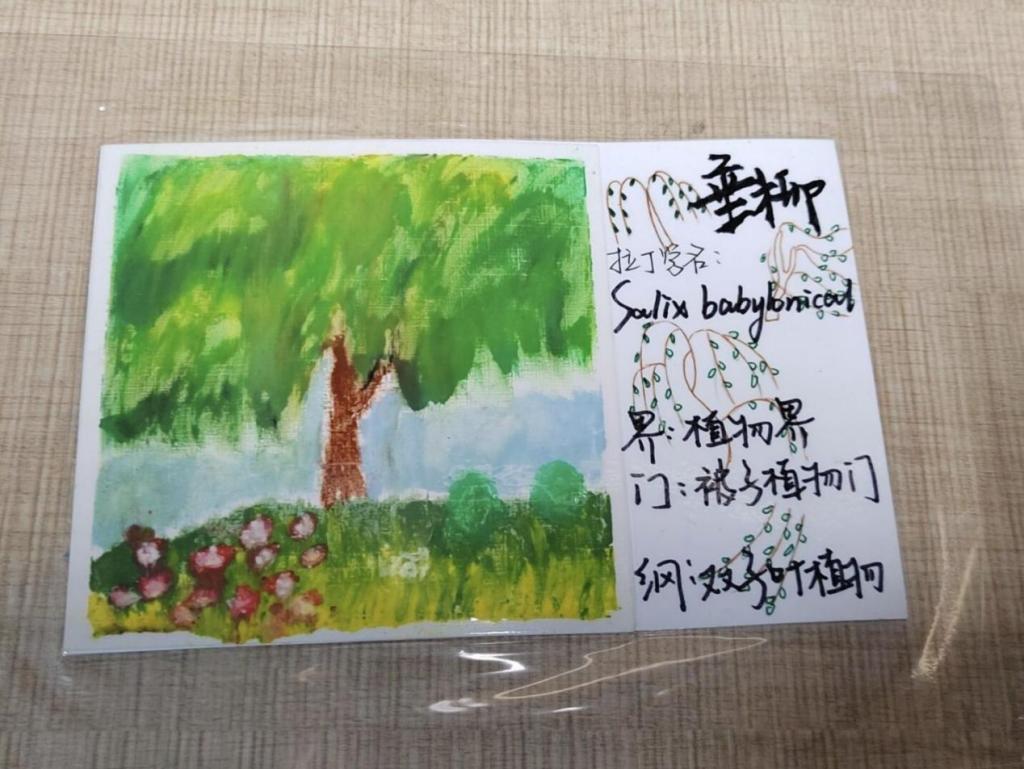 垂柳
拉丁学名:
Salix babylonical
界:植物界
门:被子植物门
纲:双子叶植物